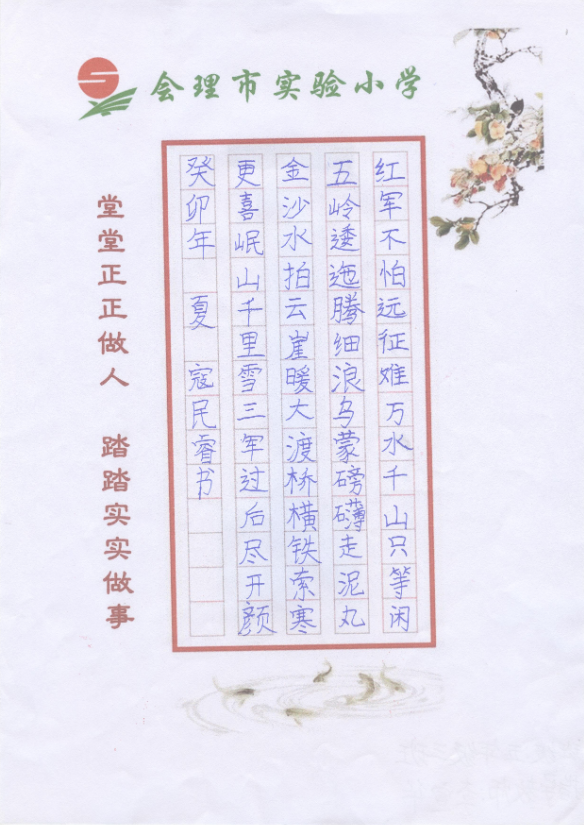 会理市实验小学
红军不怕远征难万水千山只等闲
五岭逶迤腾细浪乌蒙磅礴走泥丸
金沙水拍云崖暖大渡桥横铁索寒
更喜岷山千里雪三军过后尽开颜
癸卯年 夏 寇民睿书
堂堂正正做人 踏踏实实做事